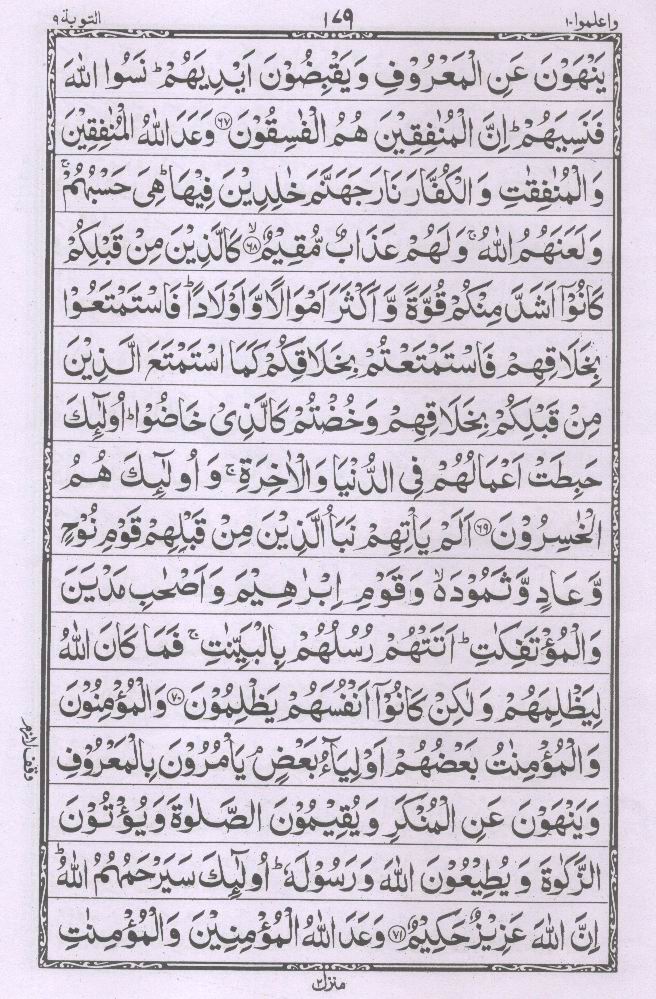 واعلموا ١٠ ١٧٩ التوبة ٩
يَنْهَوْنَ عَنِ الْمَعْرُوْفِ وَيَقْبِضُوْنَ اَيْدِيَهُمْ ؕ نَسُوا اللّٰهَ
فَنَسِيَهُمْ ؕ اِنَّ الْمُنٰفِقِيْنَ هُمُ الْفٰسِقُوْنَ ﴿۶۷﴾ وَعَدَ اللّٰهُ الْمُنٰفِقِيْنَ
وَالْمُنٰفِقٰتِ وَالْكُفَّارَ نَارَ جَهَنَّمَ خٰلِدِيْنَ فِيْهَا ؕ هِيَ حَسْبُهُمْ ۚ
وَلَعَنَهُمُ اللّٰهُ ۚ وَلَهُمْ عَذَابٌ مُّقِيْمٌ ۙ﴿۶۸﴾ كَالَّذِيْنَ مِنْ قَبْلِكُمْ
كَانُوْۤا اَشَدَّ مِنْكُمْ قُوَّةً وَّاَكْثَرَ اَمْوَالًا وَّاَوْلَادًا ؕ فَاسْتَمْتَعُوْا
بِخَلَاقِهِمْ فَاسْتَمْتَعْتُمْ بِخَلَاقِكُمْ كَمَا اسْتَمْتَعَ الَّذِيْنَ
مِنْ قَبْلِكُمْ بِخَلَاقِهِمْ وَخُضْتُمْ كَالَّذِيْ خَاضُوْا ؕ اُولٰٓئِكَ
حَبِطَتْ اَعْمَالُهُمْ فِي الدُّنْيَا وَالْاٰخِرَةِ ۚ وَاُولٰٓئِكَ هُمُ
الْخٰسِرُوْنَ ﴿۶۹﴾ اَلَمْ يَاْتِهِمْ نَبَاُ الَّذِيْنَ مِنْ قَبْلِهِمْ قَوْمِ نُوْحٍ
وَّعَادٍ وَّثَمُوْدَ ۙ وَقَوْمِ اِبْرٰهِيْمَ وَاَصْحٰبِ مَدْيَنَ
وَالْمُؤْتَفِكٰتِ ؕ اَتَتْهُمْ رُسُلُهُمْ بِالْبَيِّنٰتِ ۚ فَمَا كَانَ اللّٰهُ
لِيَظْلِمَهُمْ وَلٰكِنْ كَانُوْۤا اَنْفُسَهُمْ يَظْلِمُوْنَ ﴿۷۰﴾ وَالْمُؤْمِنُوْنَ
وَالْمُؤْمِنٰتُ بَعْضُهُمْ اَوْلِيَآءُ بَعْضٍ ۘ يَاْمُرُوْنَ بِالْمَعْرُوْفِ
وَيَنْهَوْنَ عَنِ الْمُنْكَرِ وَيُقِيْمُوْنَ الصَّلٰوةَ وَيُؤْتُوْنَ
الزَّكٰوةَ وَيُطِيْعُوْنَ اللّٰهَ وَرَسُوْلَهٗ ؕ اُولٰٓئِكَ سَيَرْحَمُهُمُ اللّٰهُ ؕ
اِنَّ اللّٰهَ عَزِيْزٌ حَكِيْمٌ ﴿۷۱﴾ وَعَدَ اللّٰهُ الْمُؤْمِنِيْنَ وَالْمُؤْمِنٰتِ
وقف لازم
منزل ٢